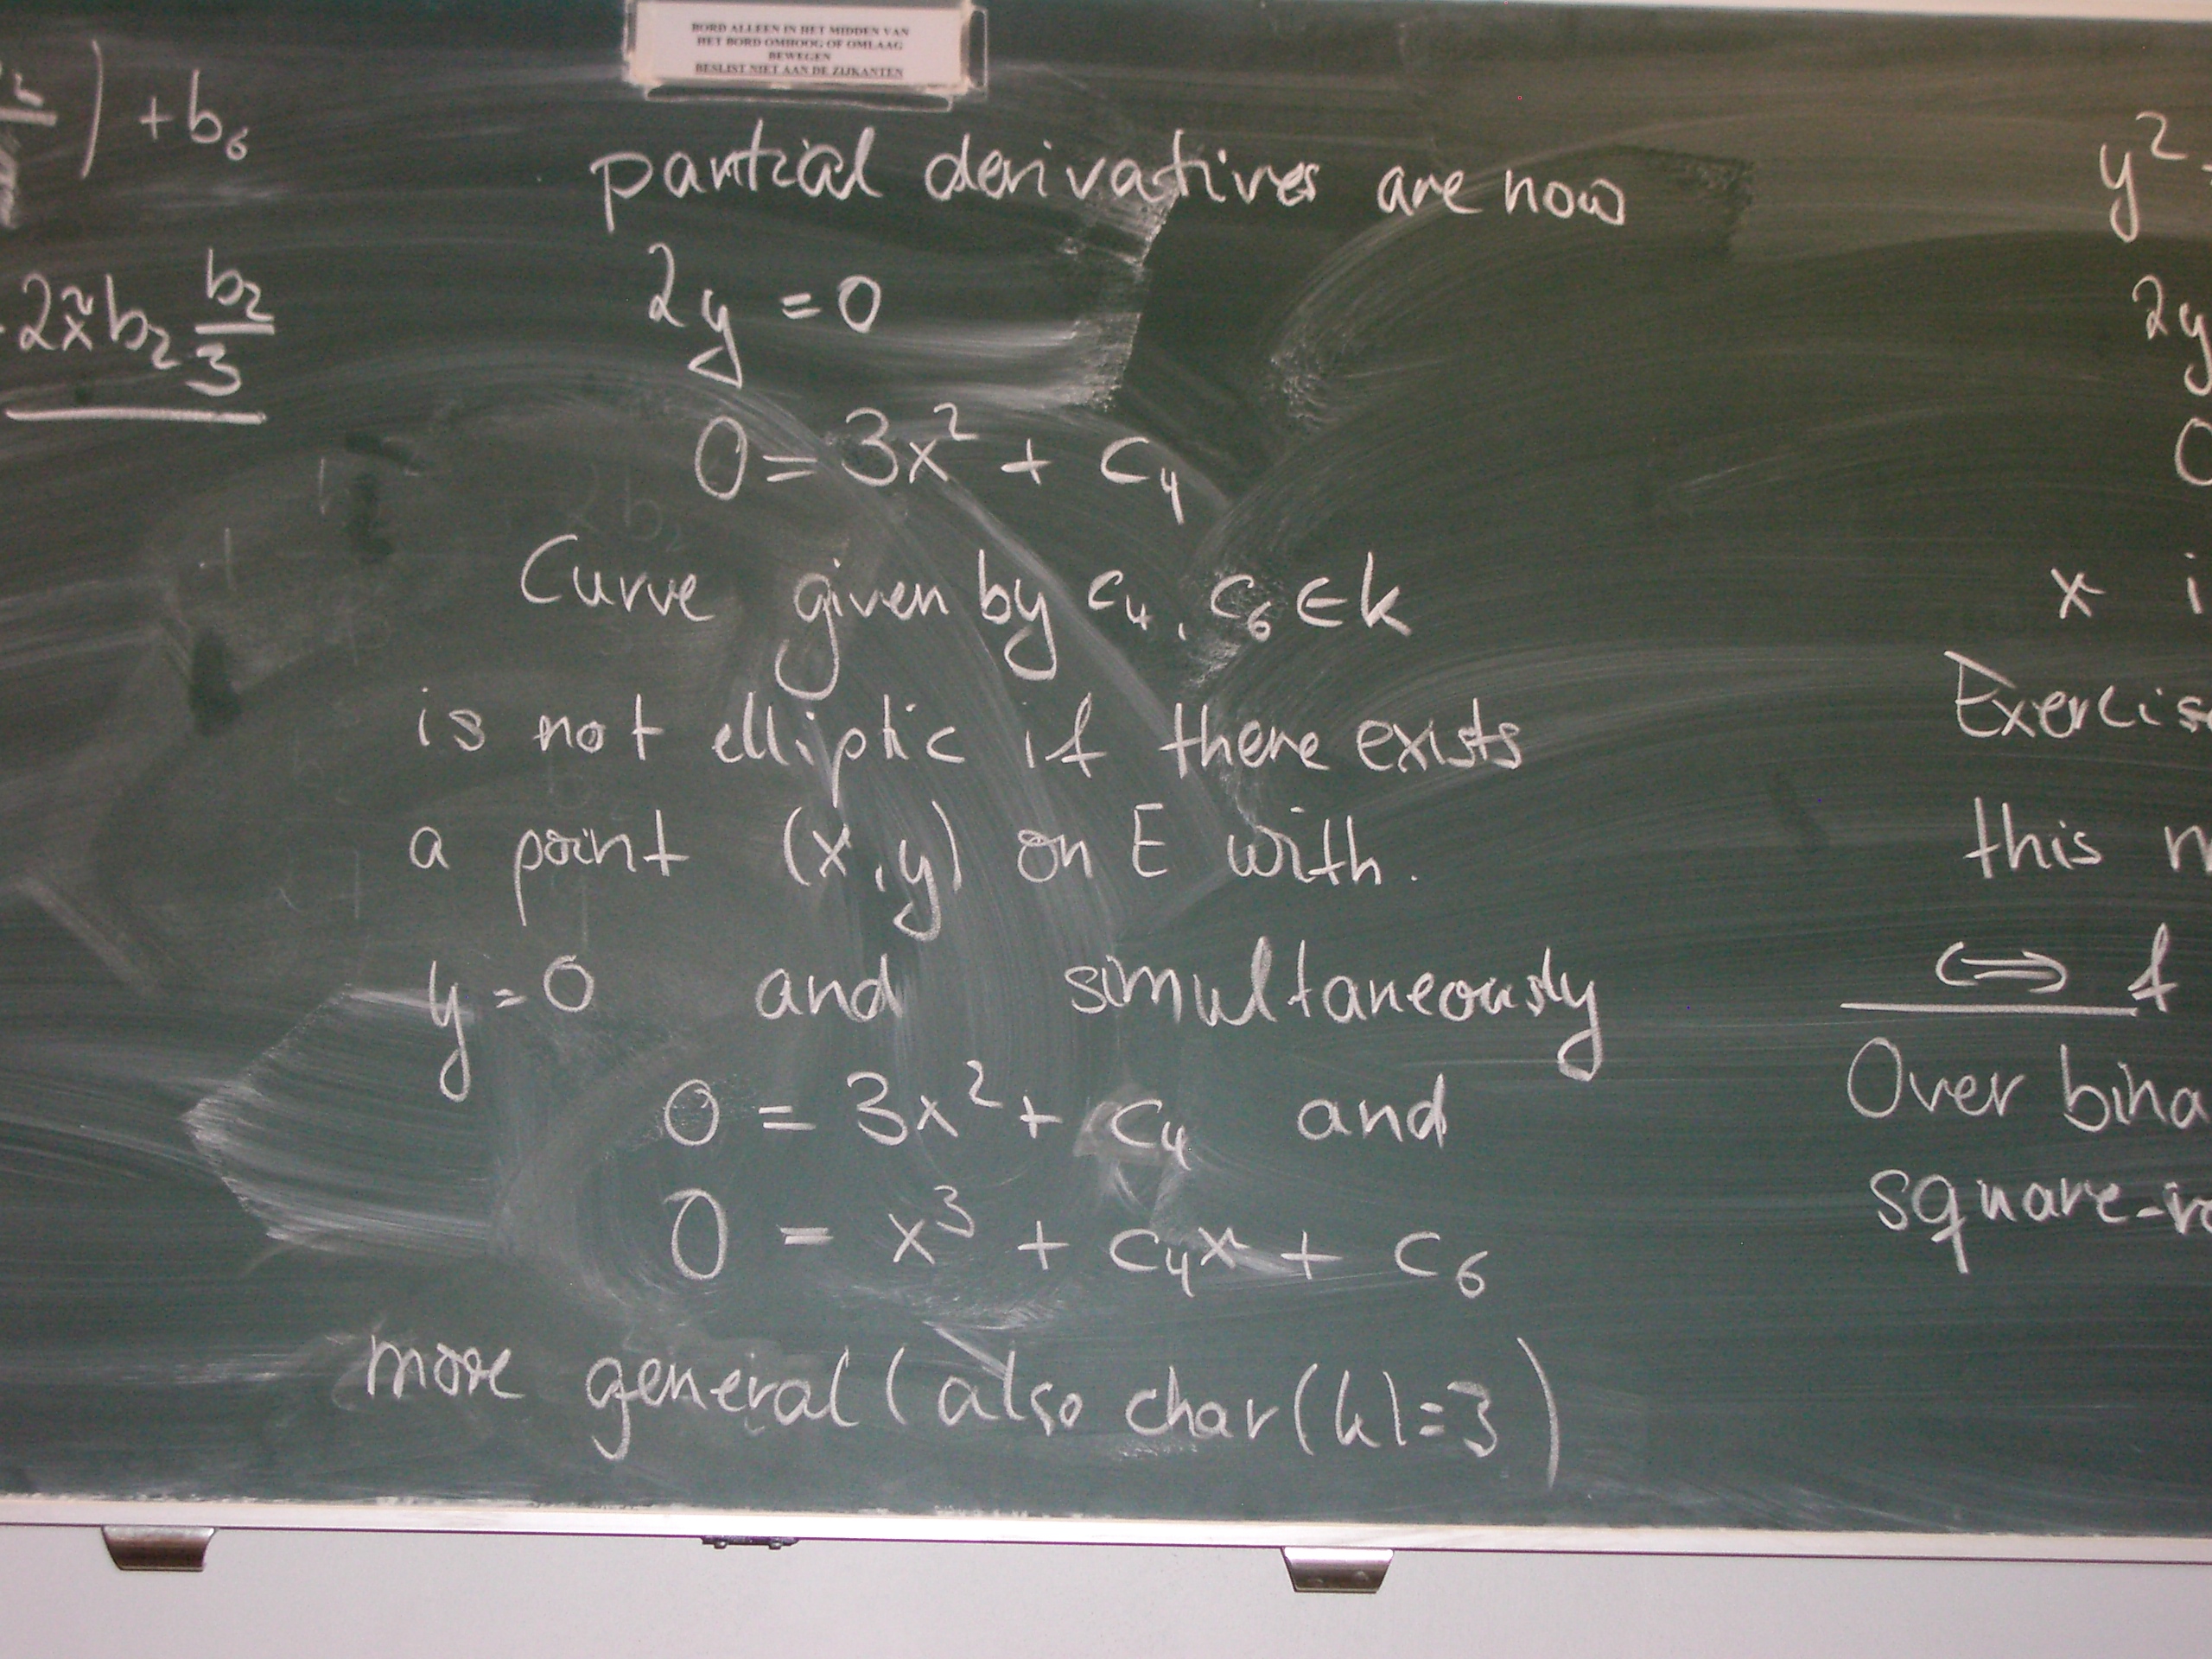 BORD ALLEEN IN HET MIDDEN VAN
HET BORD OMHOOG OF OMLAAG
BEWEGEN
BESLIST NIET AAN DE ZIJKANTEN
) + b₆
2x²b₂ b₂/3
partial derivatives are now
2y = 0
0 = 3x² + c₄
Curve given by c₄, c₆ ∈ k
is not elliptic if there exists
a point (x,y) on E with.
y = 0 and simultaneously
0 = 3x² + c₄ and
0 = x³ + c₄x + c₆
more general (also char(k)=3)
y²
2y
0
x i
Exercis
this
⟺ f
Over bina
square-ro